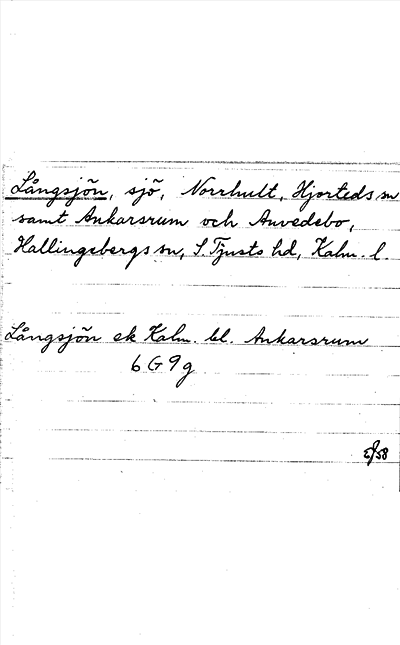 Långsjön, sjö, Norrhult, Hjorteds sn
samt Ankarsrum och Anvedebo,
Hallingebergs sn, S. Tjusts hd, Kalm. l.
Långsjön ek Kalm. bl. Ankarsrum
6G9g
/58